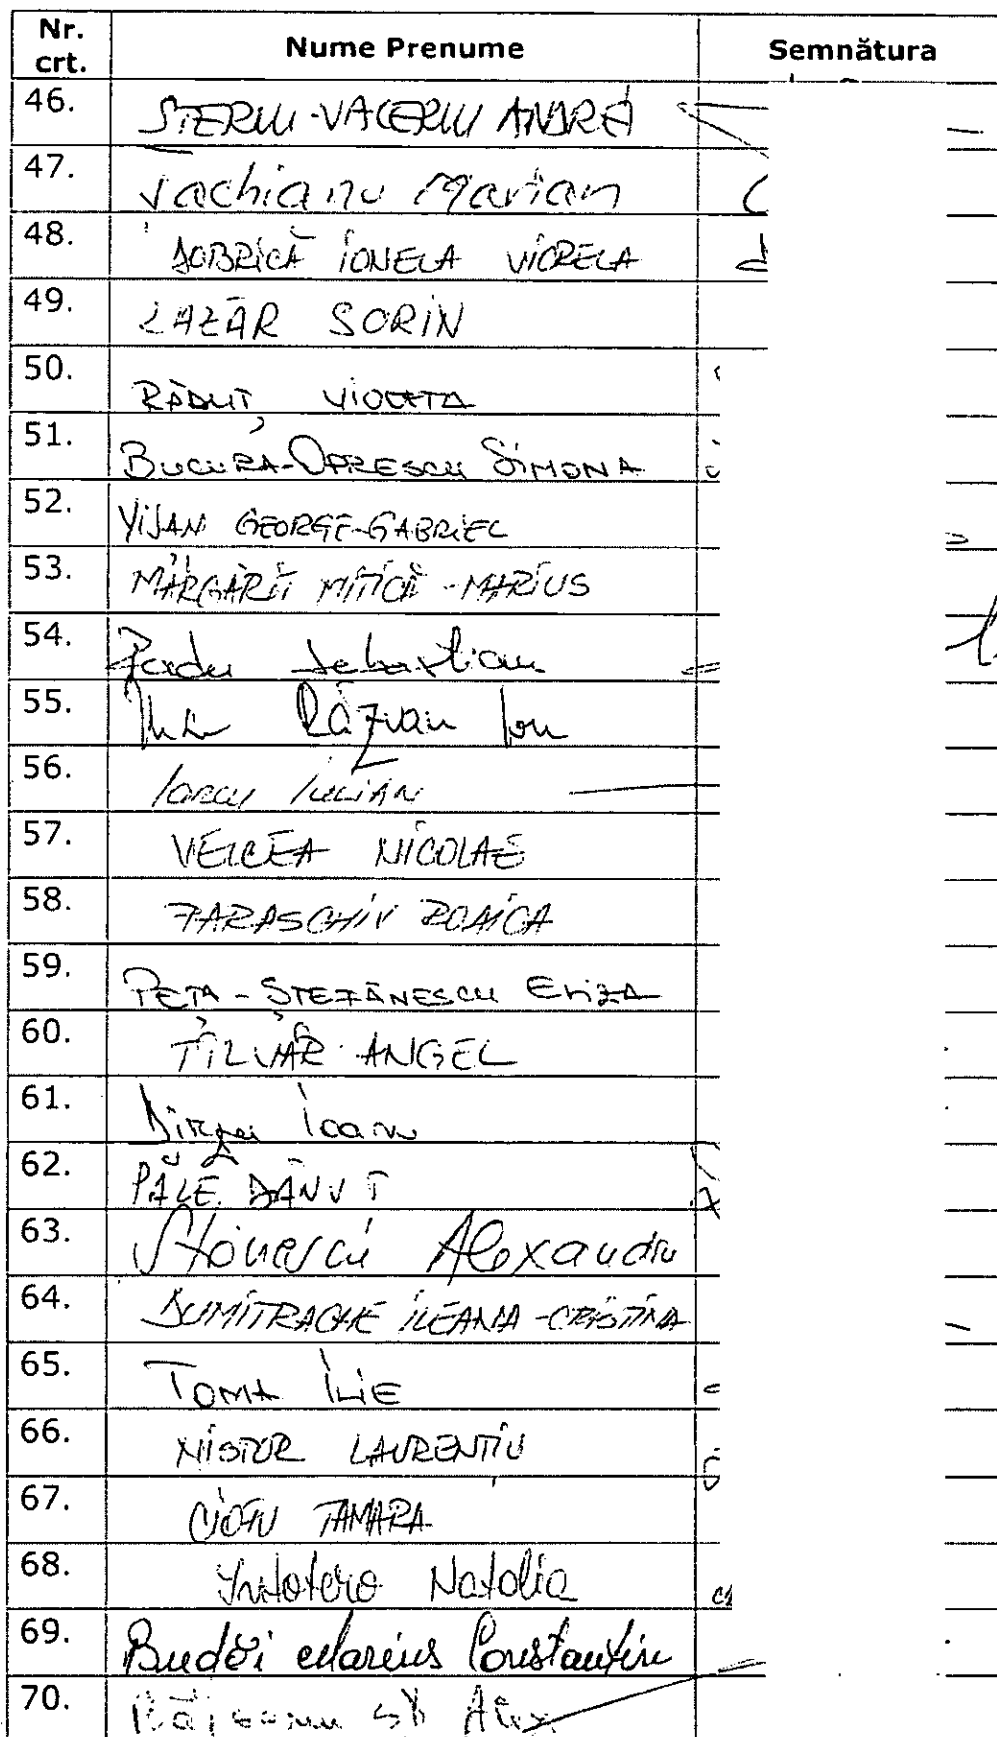 Nr. crt. Nume Prenume Semnătura
46. STERIU-VALERIU ANDREI
47. Vachianu Marian
48. DOBRICĂ IONELA VIORELA
49. LAZĂR SORIN
50. RĂDUȚ VIOLETA
51. BUCURA-OPRESCU SIMONA
52. VIJAN GEORGE-GABRIEL
53. MĂRGĂRIT MITICĂ-MARIUS
54. Radu Sebastian
55. Răzvan Ion
56. Iorcu IULIAN
57. VELCEA NICOLAE
58. PARASCHIV RODICA
59. PETA-ȘTEFĂNESCU ELIZA
60. TÎLVĂR ANGEL
61. Dîrzu Ioan
62. PĂLE DĂNUȚ
63. Stoinescu Alexandru
64. DUMITRACHE ILEANA-CRISTINA
65. TOMA ILIE
66. NISTOR LAURENȚIU
67. CIOFU TAMARA
68. Intotero Natalia
69. Budăi Marius Constantin
70.